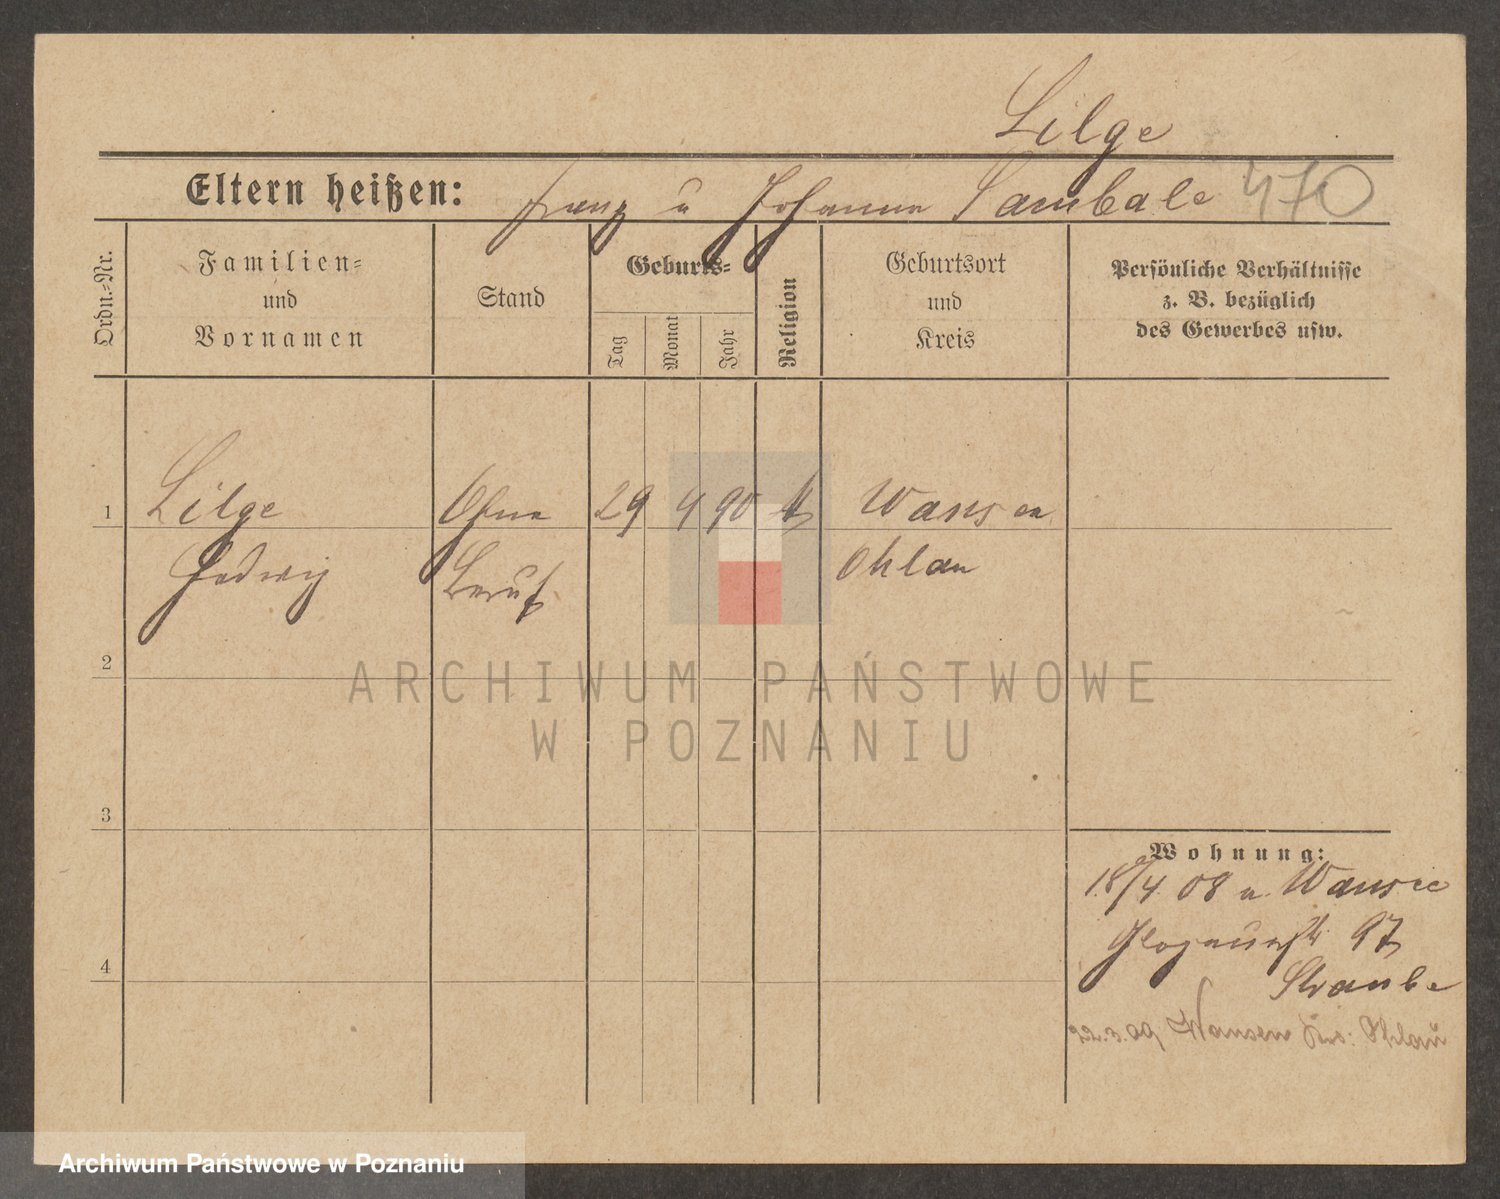 Lilge
Eltern heißen: Franz u Johanna Sambale 470
Ordn.-Nr.
Familien-
und
Vornamen
Stand
Geburts-
Tag
Monat
Jahr
Religion
Geburtsort
und
Kreis
Persönliche Verhältnisse
z. B. bezüglich
des Gewerbes usw.
1 Lilge Ohne 29 4 90 Wansen
Hedwig Beruf Ohlau
2
3
4
Wohnung:
18/4 08 n. Wansen
Glogauerstr 97
Straube
22.3.09 Wansen Krs: Ohlau
ARCHIWUM PAŃSTWOWE
W POZNANIU
Archiwum Państwowe w Poznaniu